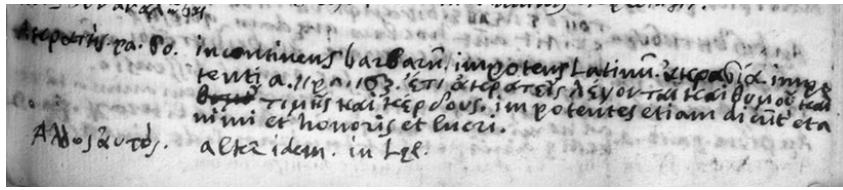 Ἀκρατὴς. pa. 80. incontinens barbarū, impotens Latinū. ἀκρασία. impo
tentia. πα. 163. ἔτι ἀκρατεῖς λέγονται καὶ θυμοῦ καὶ
τιμῆς καὶ κέρδους. impotentes etiam dicūt et a
nimi et honoris et lucri.
Ἄλλος αὐτός. alter idem. in Lęl.